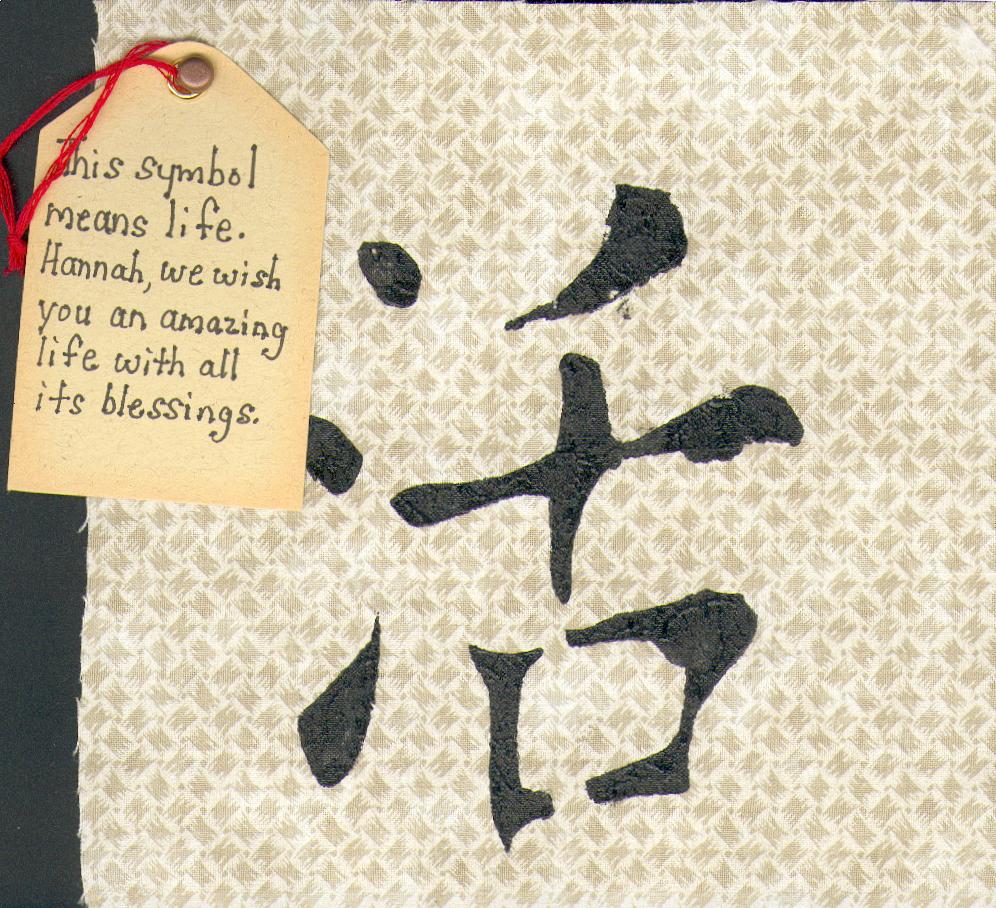 This symbol
means life.
Hannah, we wish
you an amazing
life with all
its blessings.
活